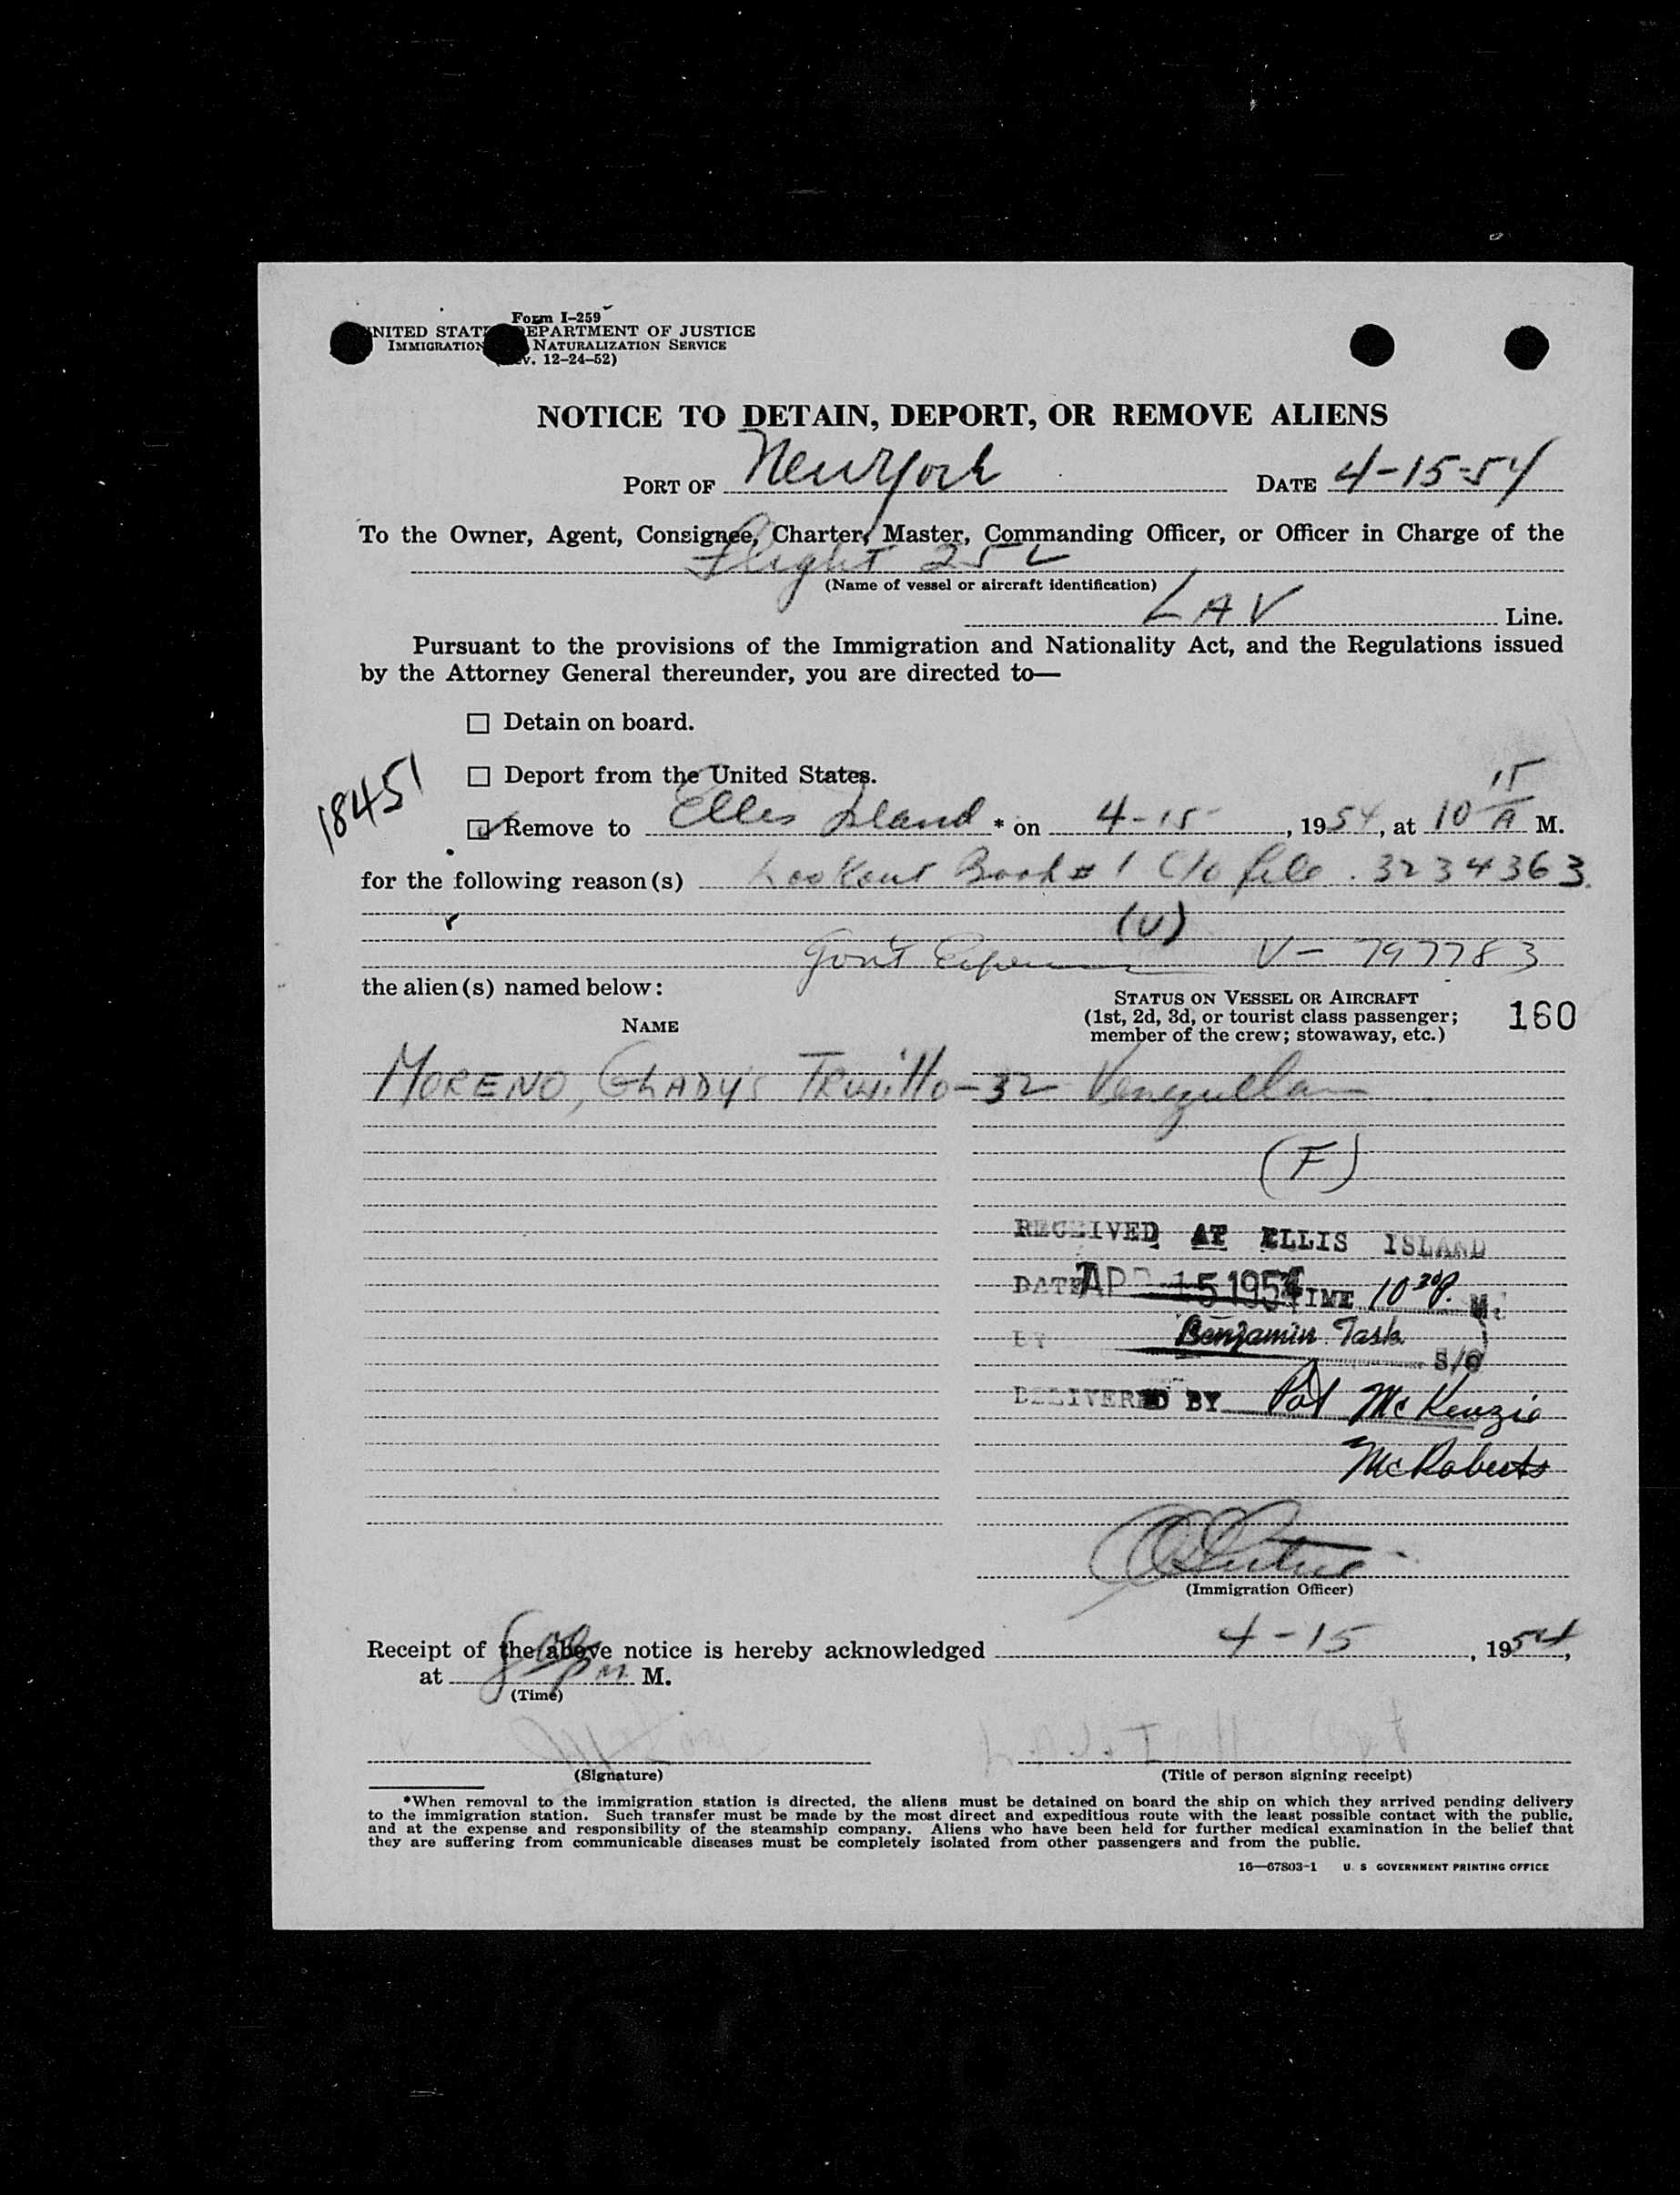 Form I-259
UNITED STATES DEPARTMENT OF JUSTICE
IMMIGRATION NATURALIZATION SERVICE
v. 12-24-52)
NOTICE TO DETAIN, DEPORT, OR REMOVE ALIENS
PORT OF New York DATE 4-15-54
To the Owner, Agent, Consignee, Charter, Master, Commanding Officer, or Officer in Charge of the
Flight 252
(Name of vessel or aircraft identification)
LAV Line.
Pursuant to the provisions of the Immigration and Nationality Act, and the Regulations issued
by the Attorney General thereunder, you are directed to—
☐ Detain on board.
☐ Deport from the United States.
18451
☑ Remove to Ellis Island * on 4-15, 1954, at 10 15 A M.
for the following reason(s) Lookout Book # 1 C/o file. 3234363
(U)
Gov't V- 797783
the alien(s) named below:
NAME
STATUS ON VESSEL OR AIRCRAFT
(1st, 2d, 3d, or tourist class passenger;
member of the crew; stowaway, etc.)
160
MORENO, GLADYS TRUJILLO - 32 Venezuelan
(F)
RECEIVED AT ELLIS ISLAND
DATE APR 15 1954 TIME 10 30 P. M.
BY Benjamin Task
S/O
DELIVERED BY Pat McKenzie
McRoberts
(Immigration Officer)
Receipt of the above notice is hereby acknowledged 4-15, 1954,
at 8 00 PM M.
(Time)
(Signature)
(Title of person signing receipt)
*When removal to the immigration station is directed, the aliens must be detained on board the ship on which they arrived pending delivery
to the immigration station. Such transfer must be made by the most direct and expeditious route with the least possible contact with the public,
and at the expense and responsibility of the steamship company. Aliens who have been held for further medical examination in the belief that
they are suffering from communicable diseases must be completely isolated from other passengers and from the public.
16—67803-1 U. S GOVERNMENT PRINTING OFFICE